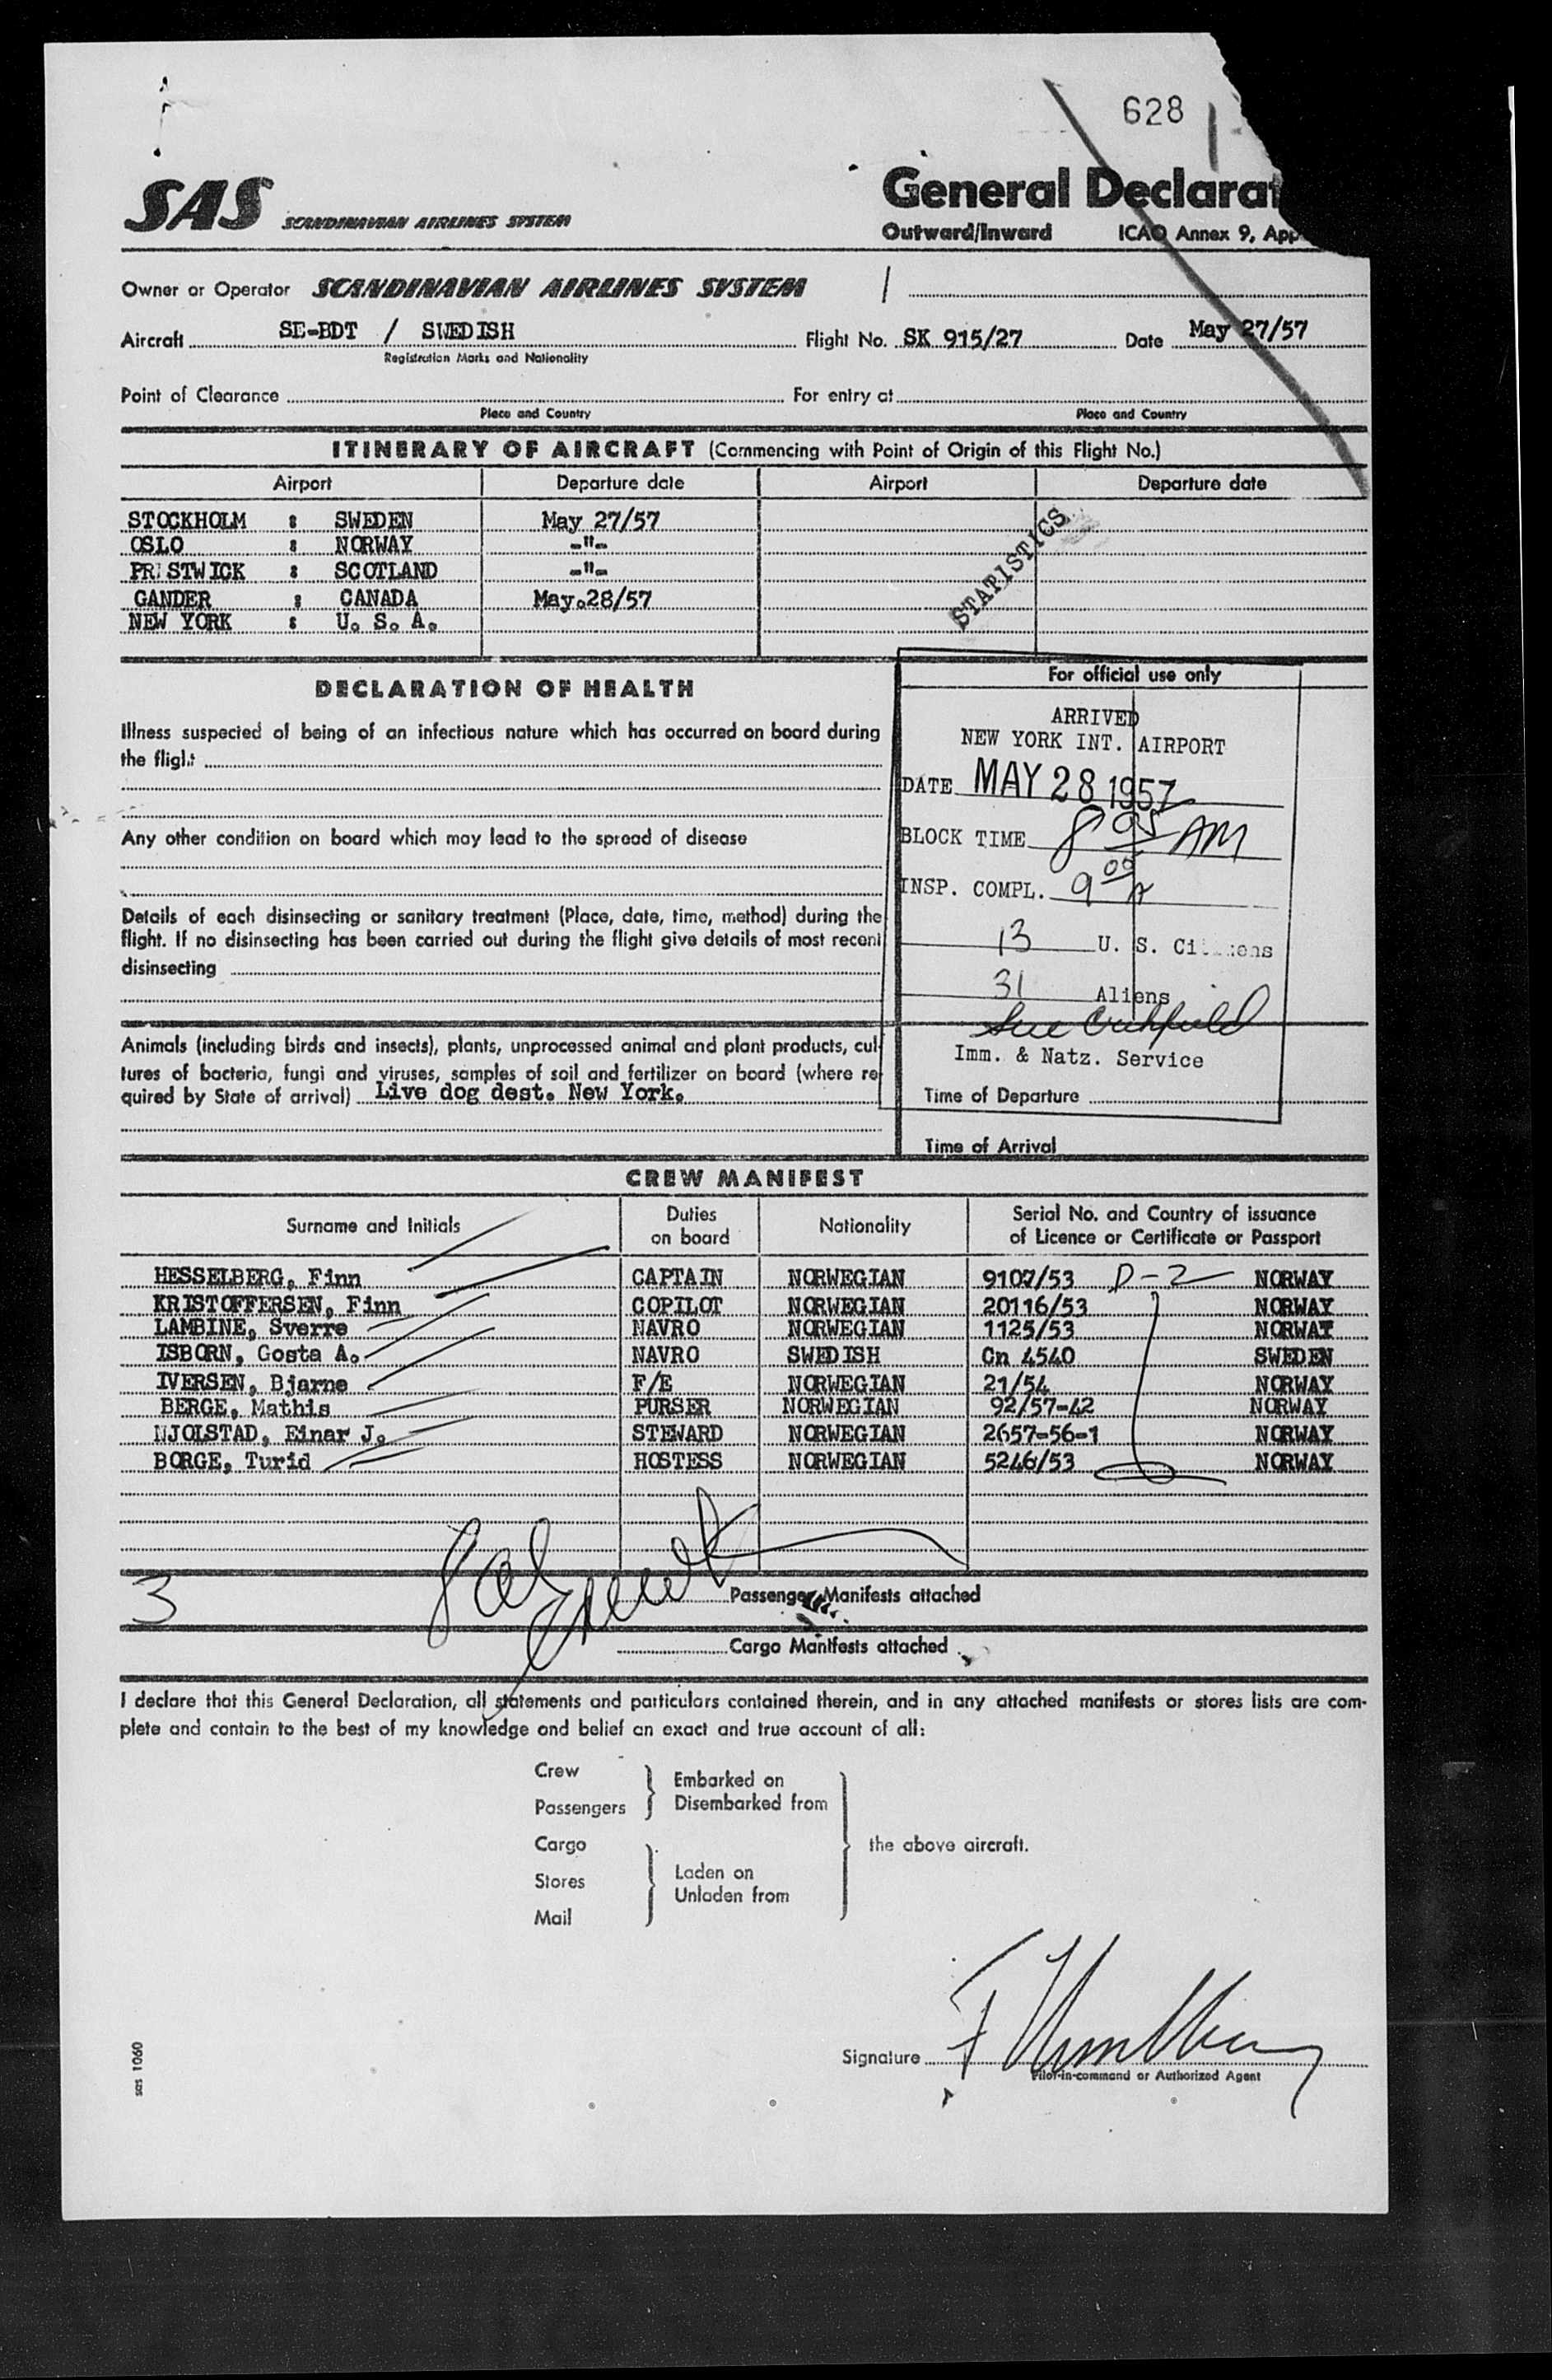 628
SAS SCANDINAVIAN AIRLINES SYSTEM
General Declarat
Outward/Inward ICAO Annex 9, App
Owner or Operator SCANDINAVIAN AIRLINES SYSTEM
Aircraft SE-BDT / SWEDISH Flight No. SK 915/27 Date May 27/57
Registration Marks and Nationality
Point of Clearance For entry at
Place and Country Place and Country
ITINERARY OF AIRCRAFT (Commencing with Point of Origin of this Flight No.)
Airport Departure date Airport Departure date
STOCKHOLM : SWEDEN May 27/57
OSLO : NORWAY -"-
PRESTWICK : SCOTLAND -"-
GANDER : CANADA May.28/57
NEW YORK : U. S. A.
STATISTICS
DECLARATION OF HEALTH
Illness suspected of being of an infectious nature which has occurred on board during
the flight
Any other condition on board which may lead to the spread of disease
Details of each disinsecting or sanitary treatment (Place, date, time, method) during the
flight. If no disinsecting has been carried out during the flight give details of most recent
disinsecting
Animals (including birds and insects), plants, unprocessed animal and plant products, cul-
tures of bacteria, fungi and viruses, samples of soil and fertilizer on board (where re-
quired by State of arrival) Live dog dest. New York.
For official use only
ARRIVED
NEW YORK INT. AIRPORT
DATE MAY 28 1957
BLOCK TIME 8 05 AM
INSP. COMPL. 9 00 A
13 U. S. Citizens
31 Aliens
Imm. & Natz. Service
Time of Departure
Time of Arrival
CREW MANIFEST
Surname and Initials Duties on board Nationality Serial No. and Country of issuance of Licence or Certificate or Passport
HESSELBERG, Finn CAPTAIN NORWEGIAN 9107/53 D-2 NORWAY
KRISTOFFERSEN, Finn COPILOT NORWEGIAN 20116/53 NORWAY
LAMBINE, Sverre NAVRO NORWEGIAN 1125/53 NORWAY
ISBORN, Gosta A. NAVRO SWEDISH Cn 4540 SWEDEN
IVERSEN, Bjarne F/E NORWEGIAN 21/54 NORWAY
BERGE, Mathis PURSER NORWEGIAN 92/57-42 NORWAY
NJOLSTAD, Einar J. STEWARD NORWEGIAN 2657-56-1 NORWAY
BORGE, Turid HOSTESS NORWEGIAN 5246/53 NORWAY
3 Passenger Manifests attached
Cargo Manifests attached
I declare that this General Declaration, all statements and particulars contained therein, and in any attached manifests or stores lists are com-
plete and contain to the best of my knowledge and belief an exact and true account of all:
Crew
Passengers
Embarked on
Disembarked from
Cargo
Stores
Mail
Laden on
Unladen from
the above aircraft.
Signature
Pilot-in-command or Authorized Agent
sas 1060